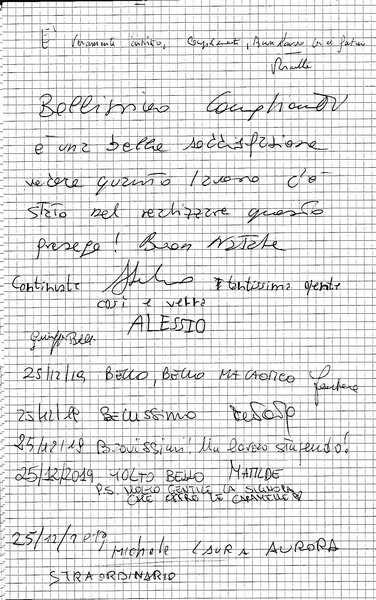 E' veramente Complimenti,
Bellissimo Complimenti
è una bella soddisfazione
vedere quanto lavoro c'è
stato nel realizzare questo
presepe! Buon Natale
Continuate tantissima gente
così e verrà
ALESSIO
25/12/19 BELLO, BELLO MA CAOTICO
25/12/19 BELLISSIMO
25/12/19 Bravissimi! Un lavoro stupendo!
25/12/2019 MOLTO BELLO MATILDE
P.S. MOLTO GENTILE LA SIGNORA
CHE OFFRE LE CARAMELLE
25/12/2019 Michele LAURA AURORA
STRAORDINARIO